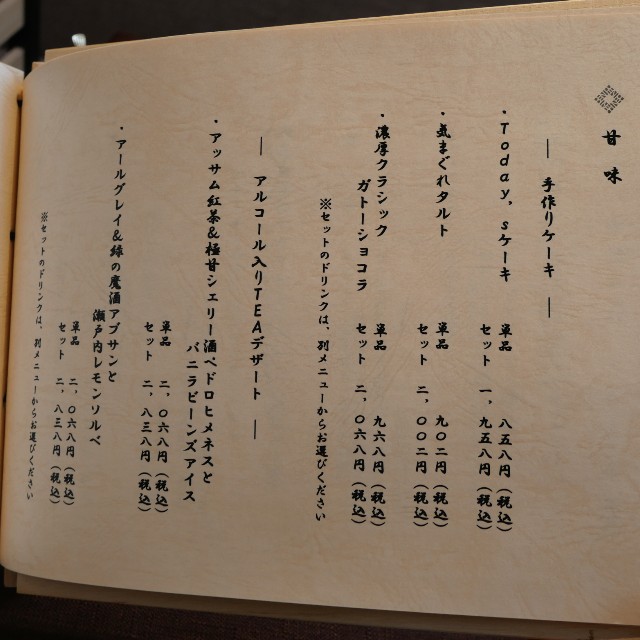 甘味
― 手作りケーキ ―
・Today,sケーキ
単品 八五八円（税込）
セット 一、九五八円（税込）
・気まぐれタルト
単品 九〇二円（税込）
セット 二、〇〇二円（税込）
・濃厚クラシック
ガトーショコラ
単品 九六八円（税込）
セット 二、〇六八円（税込）
※セットのドリンクは、別メニューからお選びください
― アルコール入りTEAデザート ―
・アッサム紅茶&極甘シェリー酒ペドロヒメネスと
バニラビーンズアイス
単品 二、〇六八円（税込）
セット 二、八三八円（税込）
・アールグレイ&緑の魔酒アブサンと
瀬戸内レモンソルベ
単品 二、〇六八円（税込）
セット 二、八三八円（税込）
※セットのドリンクは、別メニューからお選びください